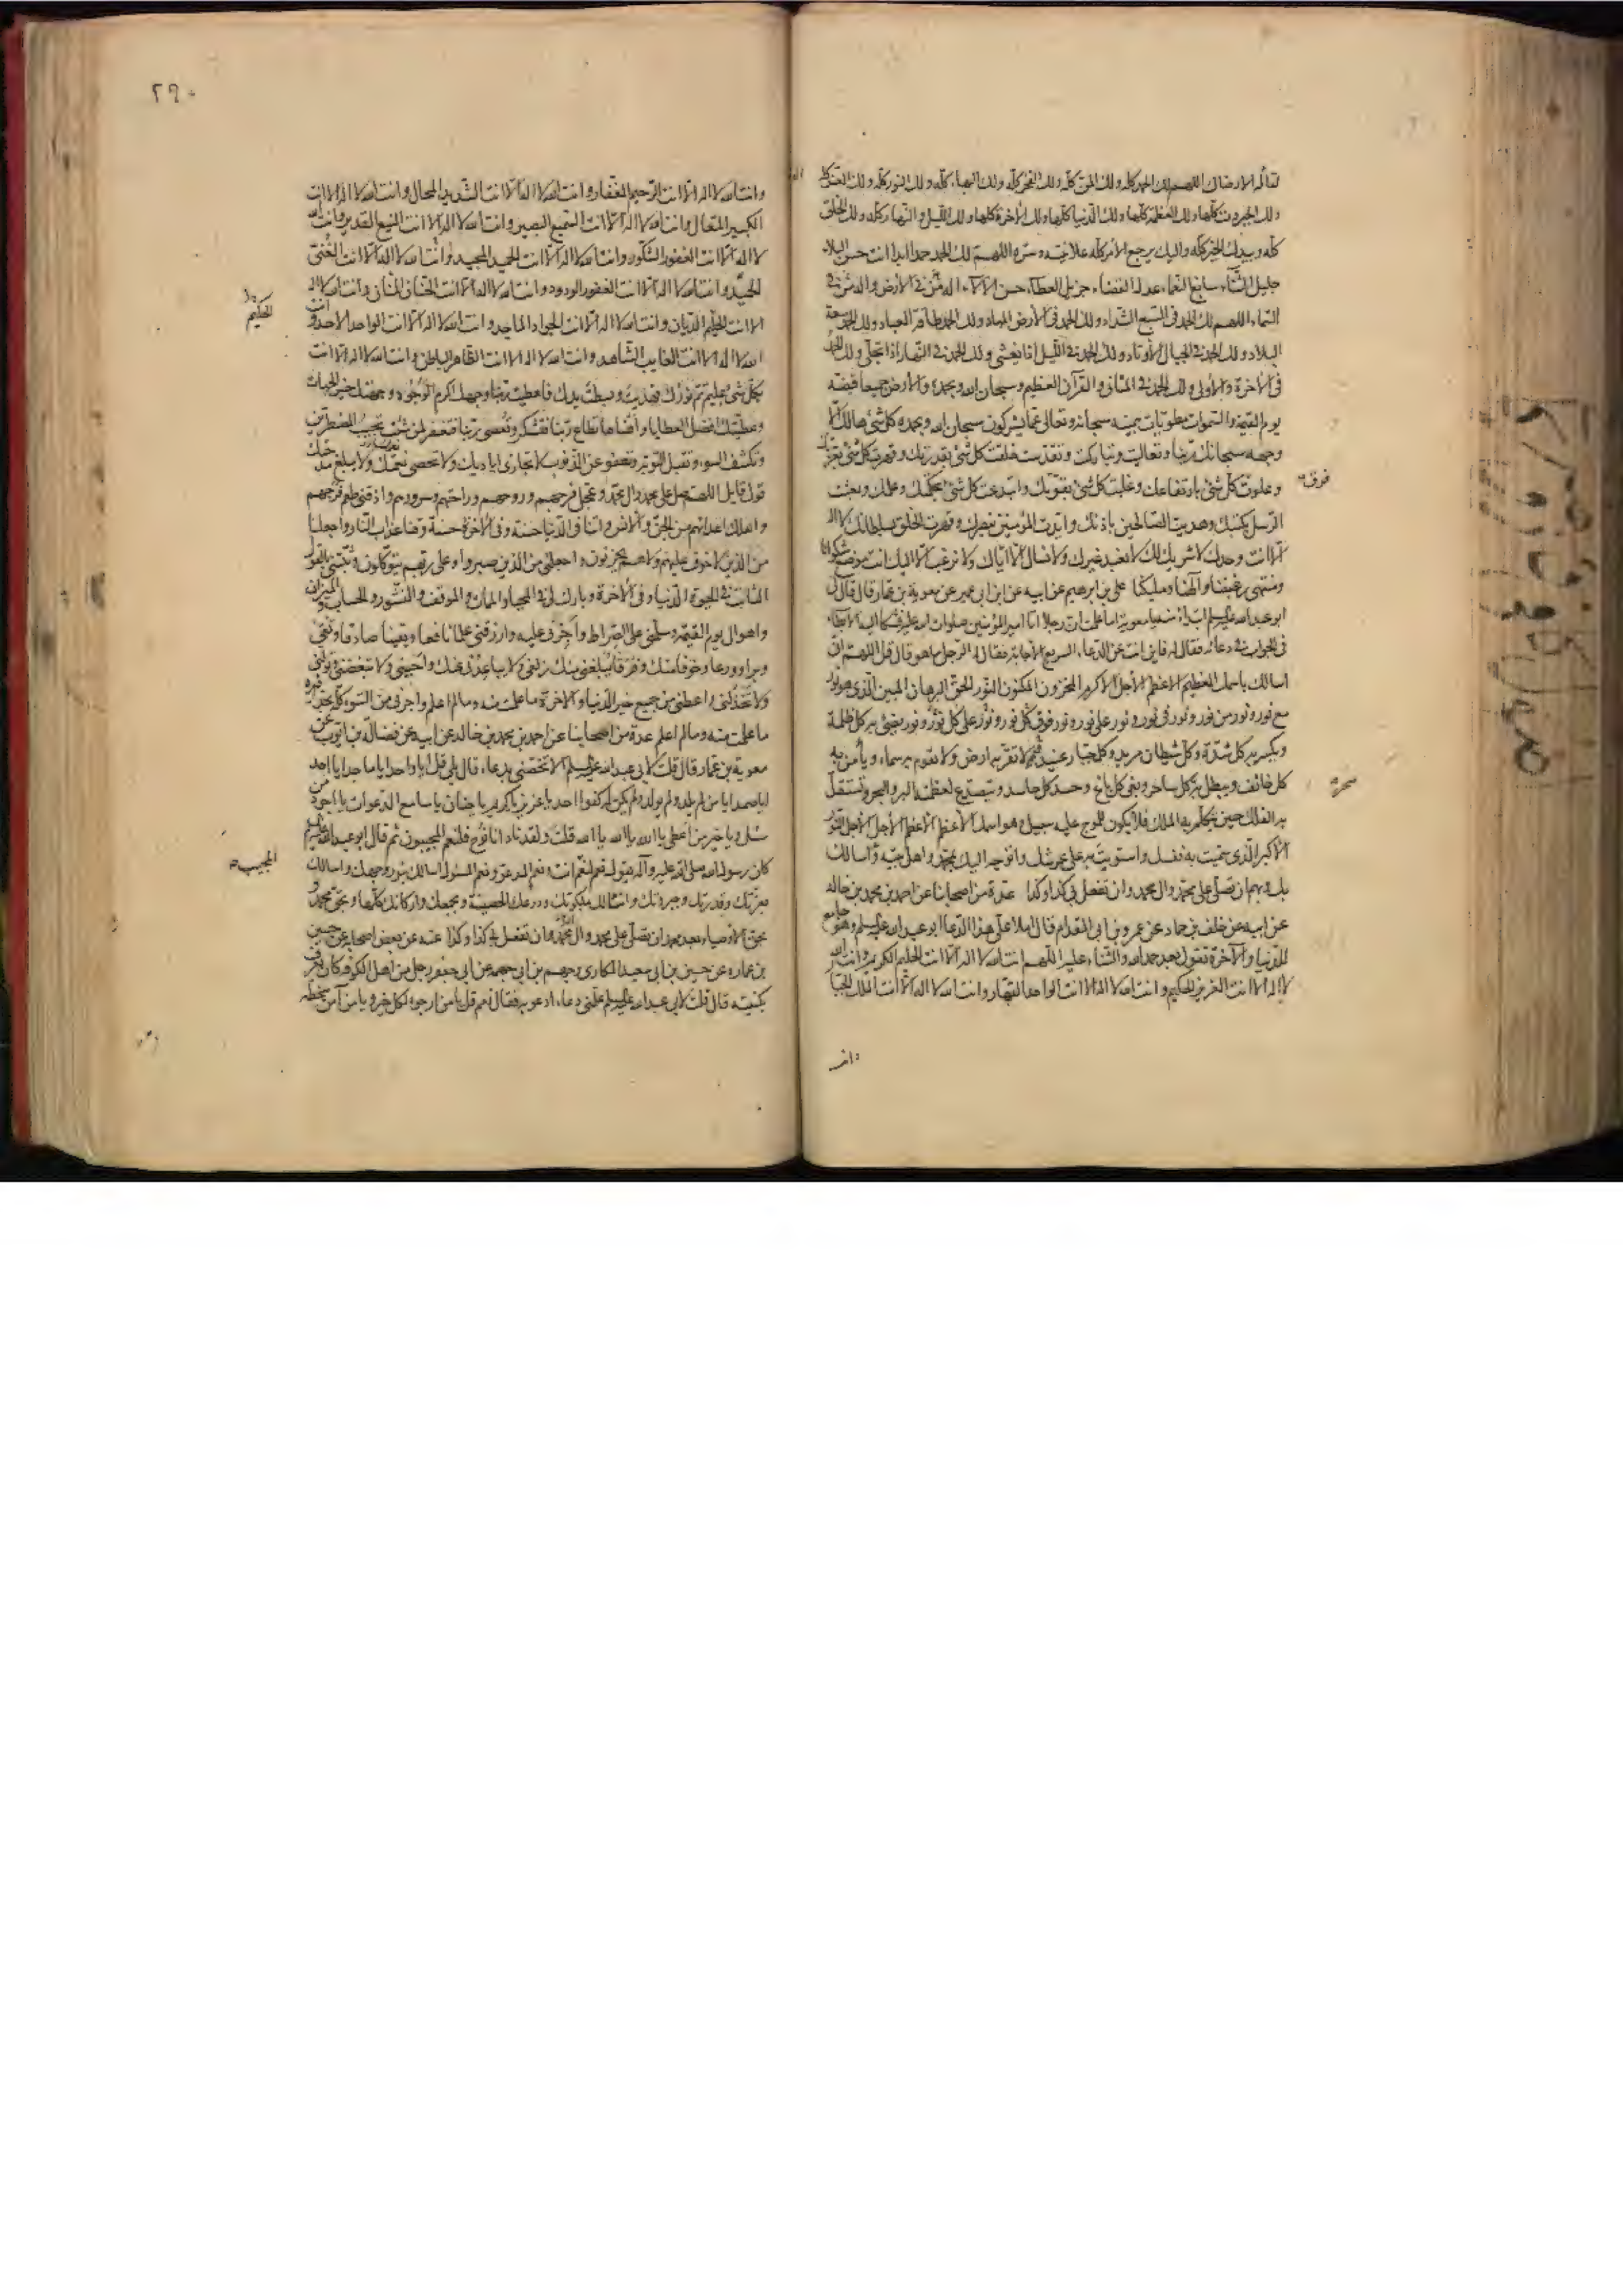 لقائه الا رضاك اللهم لك الحمد كله ولك المن كله ولك الفخر كله ولك البهاء كله ولك النور كله ولك العزة كلها
ولك الجبروت كلها ولك العظمة كلها ولك الدنيا كلها ولك الآخرة كلها ولك الليل والنهار كله ولك الخلق
كله وبيدك الخير كله واليك يرجع الأمر كله علانيته وسره اللهم لك الحمد حمدا ابدا انت حسن البلاء
جليل الثناء سابغ النعماء عدل القضاء جزيل العطاء حسن الآلاء اله من في الأرض واله من في
السماء اللهم لك الحمد في السبع الشداد ولك الحمد في الأرض المهاد ولك الحمد طاقة العباد ولك الحمد سعة
البلاد ولك الحمد في الجبال الأوتاد ولك الحمد في الليل اذا يغشى ولك الحمد في النهار اذا تجلى ولك الحمد
في الآخرة والأولى ولك الحمد في المثاني والقرآن العظيم وسبحان الله وبحمده والأرض جميعا قبضته
يوم القيمة والسموات مطويات بيمينه سبحانه وتعالى عما يشركون سبحان الله وبحمده كل شئ هالك الا
وجهه سبحانك ربنا وتعاليت وتباركت وتقدست خلقت كل شئ بقدرتك وقهرت كل شئ بعزتك
وعلوت كل شئ بارتفاعك وغلبت كل شئ بقوتك وابتدعت كل شئ بحكمتك وعلمك وبعثت
فوق
الرسل بكتبك وهديت الصالحين باذنك وايدت المؤمنين بنصرك وقهرت الخلق بسلطانك لا اله
الا انت وحدك لا شريك لك لا نعبد غيرك ولا نسأل الا اياك ولا نرغب الا اليك انت موضع شكوانا
ومنتهى رغبتنا والهنا ومليكنا على بن ابرهيم عن ابيه عن ابن ابي عمير عن معوية بن عمار قال قال لى
ابو عبد الله عليه السلم ابتداء منه يا معوية اما علمت ان رجلا اتى امير المؤمنين صلوات الله عليه فشكا اليه الابطاء
في الجواب في دعائه فقال له فاين انت عن الدعاء السريع الاجابة فقال له الرجل ما هو قال قل اللهم انى
اسالك باسمك العظيم الاعظم الأجل الأكرم المخزون المكنون النور الحق البرهان المبين الذى هو نور
مع نور ونور من نور ونور في نور ونور على نور ونور فوق كل نور ونور على كل نور ونور يضئ به كل ظلمة
ويكسر به كل شدة وكل شيطان مريد وكل جبار عنيد لا تقر به ارض ولا تقوم به سماء ويأمن به
كل خائف ويبطل به كل ساحر وبغى كل باغ وحسد كل حاسد ويتصدع لعظمته البر والبحر وتستقل
سحر
به الفلك حين يتكلم به الملك فلا يكون للموج عليه سبيل وهو اسمك الأعظم الأعظم الأجل الأجل النور
الأكبر الذى سميت به نفسك واستويت به على عرشك واتوجه اليك بمحمد واهل بيته واسالك
بك وبهم ان تصلى على محمد وآل محمد وان تفعل بى كذا وكذا عدة من اصحابنا عن احمد بن محمد بن خالد
عن ابيه عن خلف بن حماد عن عمرو بن ابى المقدام قال املا على هذا الدعا ابو عبد الله عليه السلم وهو جامع
للدنيا والآخرة تقول بعد حمد الله والثناء عليه اللهم انت الله لا اله الا انت الحليم الكريم وانت الله
لا اله الا انت العزيز الحكيم وانت الله لا اله الا انت الواحد القهار وانت الله لا اله الا انت الملك الجبار
وانت
٢٩٠
وانت الله لا اله الا انت الرحيم الغفار وانت الله لا اله الا انت الشديد المحال وانت الله لا اله الا انت
الكبير المتعال وانت الله لا اله الا انت السميع البصير وانت الله لا اله الا انت المنيع القدير وانت الله
لا اله الا انت الغفور الشكور وانت الله لا اله الا انت الحميد المجيد وانت الله لا اله الا انت الغنى
الحميد وانت الله لا اله الا انت الغفور الودود وانت الله لا اله الا انت الحنان المنان وانت الله لا اله
الحكيم
الا انت الحليم الديان وانت الله لا اله الا انت الجواد الماجد وانت الله لا اله الا انت الواحد الاحد وانت
الله لا اله الا انت الغايب الشاهد وانت الله لا اله الا انت الظاهر الباطن وانت الله لا اله الا انت
بكل شئ عليم تم نورك فهديت وبسطت يدك فاعطيت ربنا وجهك اكرم الوجوه وجهتك خير الجهات
وعطيتك افضل العطايا واهناها تطاع ربنا فتشكر وتعصى ربنا فتغفر لمن شئت تجيب المضطرين
وتكشف السوء وتقبل التوبة وتعفو عن الذنوب لا تجازى اياديك ولا تحصى نعمك ولا يبلغ مدحتك
قول قايل اللهم صل على محمد وآل محمد وعجل فرجهم وروحهم وراحتهم وسرورهم واذقنى طعم فرجهم
واهلك اعدائهم من الجن والانس وآتنا في الدنيا حسنة وفي الآخرة حسنة وقنا عذاب النار واجعلنا
من الذين لا خوف عليهم ولا هم يحزنون واجعلنى من الذين صبروا وعلى ربهم يتوكلون وثبتنى بالقول
الثابت في الحيوة الدنيا وفي الآخرة وبارك لى في المحيا والممات والموقف والنشور والحساب والميزان
واهوال يوم القيمة وسلمنى على الصراط واجزنى عليه وارزقنى علما نافعا ويقينا صادقا وتقى
وبرا وورعا وخوفا منك وفرقا يبلغنى منك زلفى ولا يباعدنى عنك واحببنى ولا تبغضنى وتولنى
ولا تخذلنى واعطنى من جميع خير الدنيا والآخرة ما علمت منه وما لم اعلم واجرنى من السوء كله بحذافيره
ما علمت منه وما لم اعلم عدة من اصحابنا عن احمد بن محمد بن خالد عن ابيه عن فضالة بن ايوب عن
معوية بن عمار قال قلت لابى عبد الله عليه السلم الا تخصنى بدعاء قال بلى قل يا واحد يا ماجد يا احد
يا صمد يا من لم يلد ولم يولد ولم يكن له كفوا احد يا عزيز يا كريم يا حنان يا سامع الدعوات يا اجود من
سئل ويا خير من اعطى يا الله يا الله يا الله قلت ولقد نادانا نوح فلنعم المجيبون ثم قال ابو عبد الله عليه السلم
المجيب
كان رسول الله صلى الله عليه وآله يقول نعم لنعم انت ونعم المدعو ونعم المسئول اسالك بنور وجهك واسالك
بعزتك وقدرتك وجبروتك واسالك بملكوتك ودرعك الحصينة وبجمعك واركانك كلها وبحق محمد و
بحق الاوصياء بعد محمد ان تصلى على محمد وآل محمد وان تفعل بى كذا وكذا عنه عن بعض اصحابه عن حسين
بن عماره عن حسين بن ابى سعيد المكارى وجهم بن ابى جهمة عن ابى جعفر رجل من اهل الكوفة كان يعرف
بكنيته قال قلت لابى عبد الله عليه السلم علمنى دعاء ادعو به فقال نعم قل يا من ارجوه لكل خير ويا من آمن سخطه